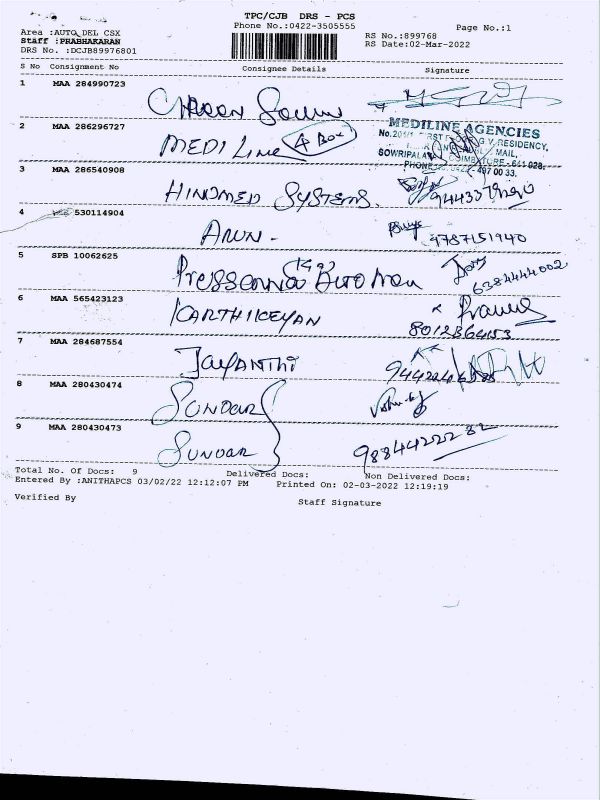 TPC/CJB DRS - PCS
Phone No.:0422-3505555
Page No.:1
Area :AUTO DEL CSX
Staff :PRABHAKARAN
DRS No. :DCJB89976801
RS No.:899768
RS Date:02-Mar-2022
S No Consignment No Consignee Details Signature
1 MAA 284990723
2 MAA 286296727 MEDI Line 4 Box
MEDILINE AGENCIES
RESIDENCY,
MAIL,
SOWRIPALAYAM COIMBATURE - 641 028.
PHONE
497 00 33.
3 MAA 286540908 HINDMED SYSTEMS.
4 530114904 ARUN - 9787151940
5 SPB 10062625 6384444002
6 MAA 565423123 KARTHIKEYAN 8012864153
7 MAA 284687554 JAYANTHI
8 MAA 280430474 SUNDAR
9 MAA 280430473 SUNDAR 9884422282
Total No. Of Docs: 9 Delivered Docs: Non Delivered Docs:
Entered By :ANITHAPCS 03/02/22 12:12:07 PM Printed On: 02-03-2022 12:19:19
Verified By Staff Signature